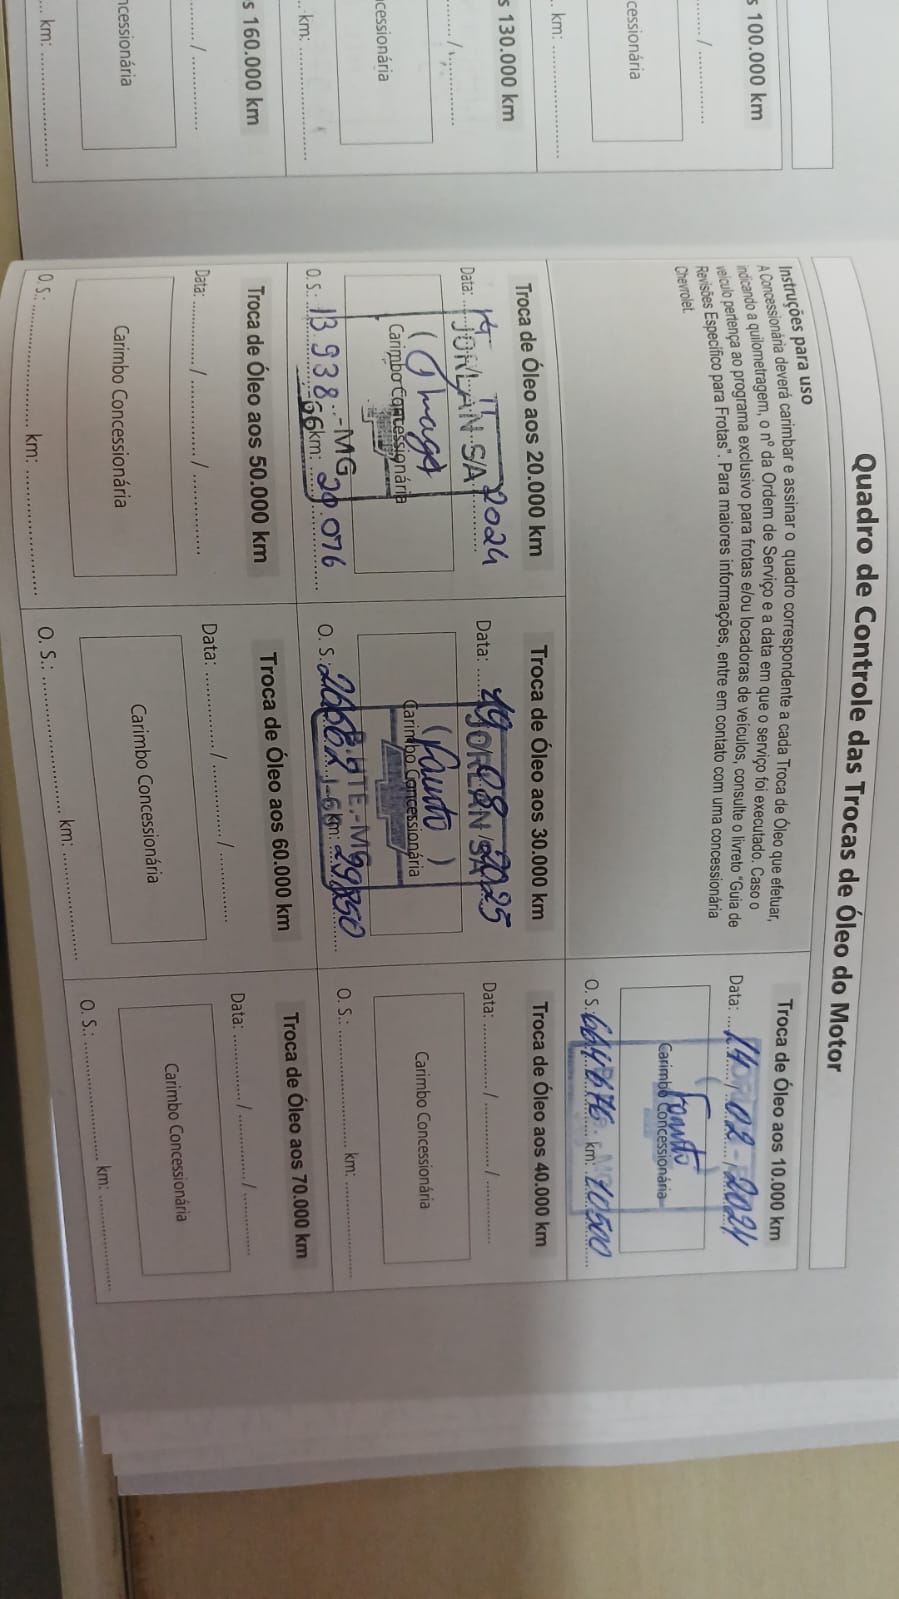 s 100.000 km
....... / ............
cessionária
.. km: ......................
s 130.000 km
....... / ............
cessionária
.. km: ......................
s 160.000 km
....... / ............
ncessionária
... km: ......................
Quadro de Controle das Trocas de Óleo do Motor
Instruções para uso
A Concessionária deverá carimbar e assinar o quadro correspondente a cada Troca de Óleo que efetuar,
indicando a quilometragem, o nº da Ordem de Serviço e a data em que o serviço foi executado. Caso o
veículo pertença ao programa exclusivo para frotas e/ou locadoras de veículos, consulte o livreto "Guia de
Revisões Específico para Frotas". Para maiores informações, entre em contato com uma concessionária
Chevrolet.
Troca de Óleo aos 10.000 km
Data: 14 / 02 / 2024
Carimbo Concessionária
O. S.: 664676 km: 10500
Troca de Óleo aos 20.000 km
Data: 11 2024
JORLAN S/A
Carimbo Concessionária
-MG
O. S.: 13.938 km: 20.076
Troca de Óleo aos 30.000 km
Data: 19 08 2025
JORLAN S/A
Carimbo Concessionária
B.HTE.-MG
O. S.: km: 29850
Troca de Óleo aos 40.000 km
Data: ............ / ............ / ............
Carimbo Concessionária
O. S.: ...................... km: ......................
Troca de Óleo aos 50.000 km
Data: ............ / ............ / ............
Carimbo Concessionária
O. S.: ...................... km: ......................
Troca de Óleo aos 60.000 km
Data: ............ / ............ / ............
Carimbo Concessionária
O. S.: ...................... km: ......................
Troca de Óleo aos 70.000 km
Data: ............ / ............ / ............
Carimbo Concessionária
O. S.: ...................... km: ......................